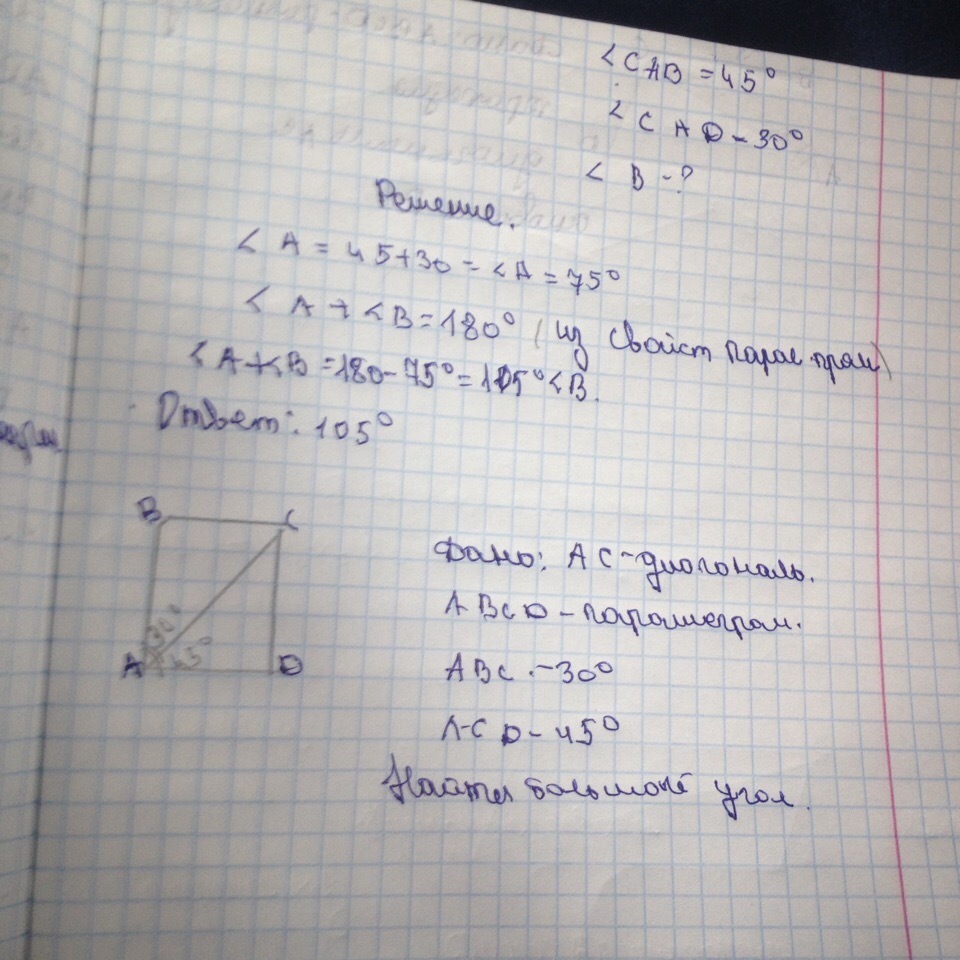 <CAB = 45°
<CAD - 30°
< B - ?
Решение.
< A = 45+30 = <A = 75°
< A + <B = 180° (из свойст паралграм)
<A+<B = 180-75° = 105° <B.
Ответ: 105°
B C
30°
A 45° D
Дано: AC-диогональ.
ABCD - паралеграм.
ABC - 30°
ACD - 45°
Найти большой угол.